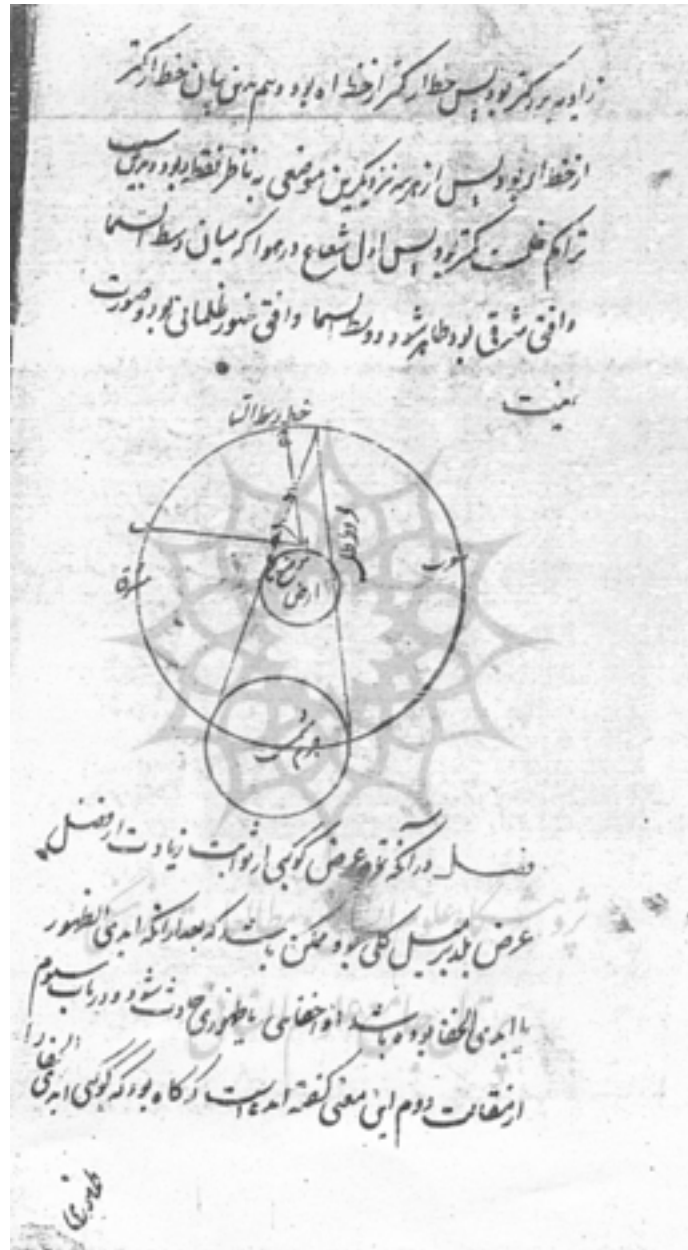 زاویه بزرگتر بود پس خط ار کمتر از خط اه بود و هم بدین بیان خط ار کمتر
از خط اب بود پس از هر سه نزدیکترین موضعی به ناظر نقطه ر بود و بدین سبب
تراکم ظلمت کمتر بود پس اول شعاع در هوا که میان وسط السما
و افق شرقی بود ظاهر شود و وسط السما و افق هنوز ظلمانی بود و صورت
اینست
خط وسط السما
مخروط ظل
مشرق
مغرب
ارض
جرم شمس
فصل در آنکه چون عرض کوکبی از ثوابت زیادت از فضل
عرض بلد بر میل کلی بود ممکن باشد که بعد از آنکه ابدی الظهور
یا ابدی الخفا بوده باشد او را خفایی یا ظهوری حادث شود و در باب سیوم
از مقالت دوم این معنی گفته آمده است که گاه بود که کوکبی ابدی الخفا را